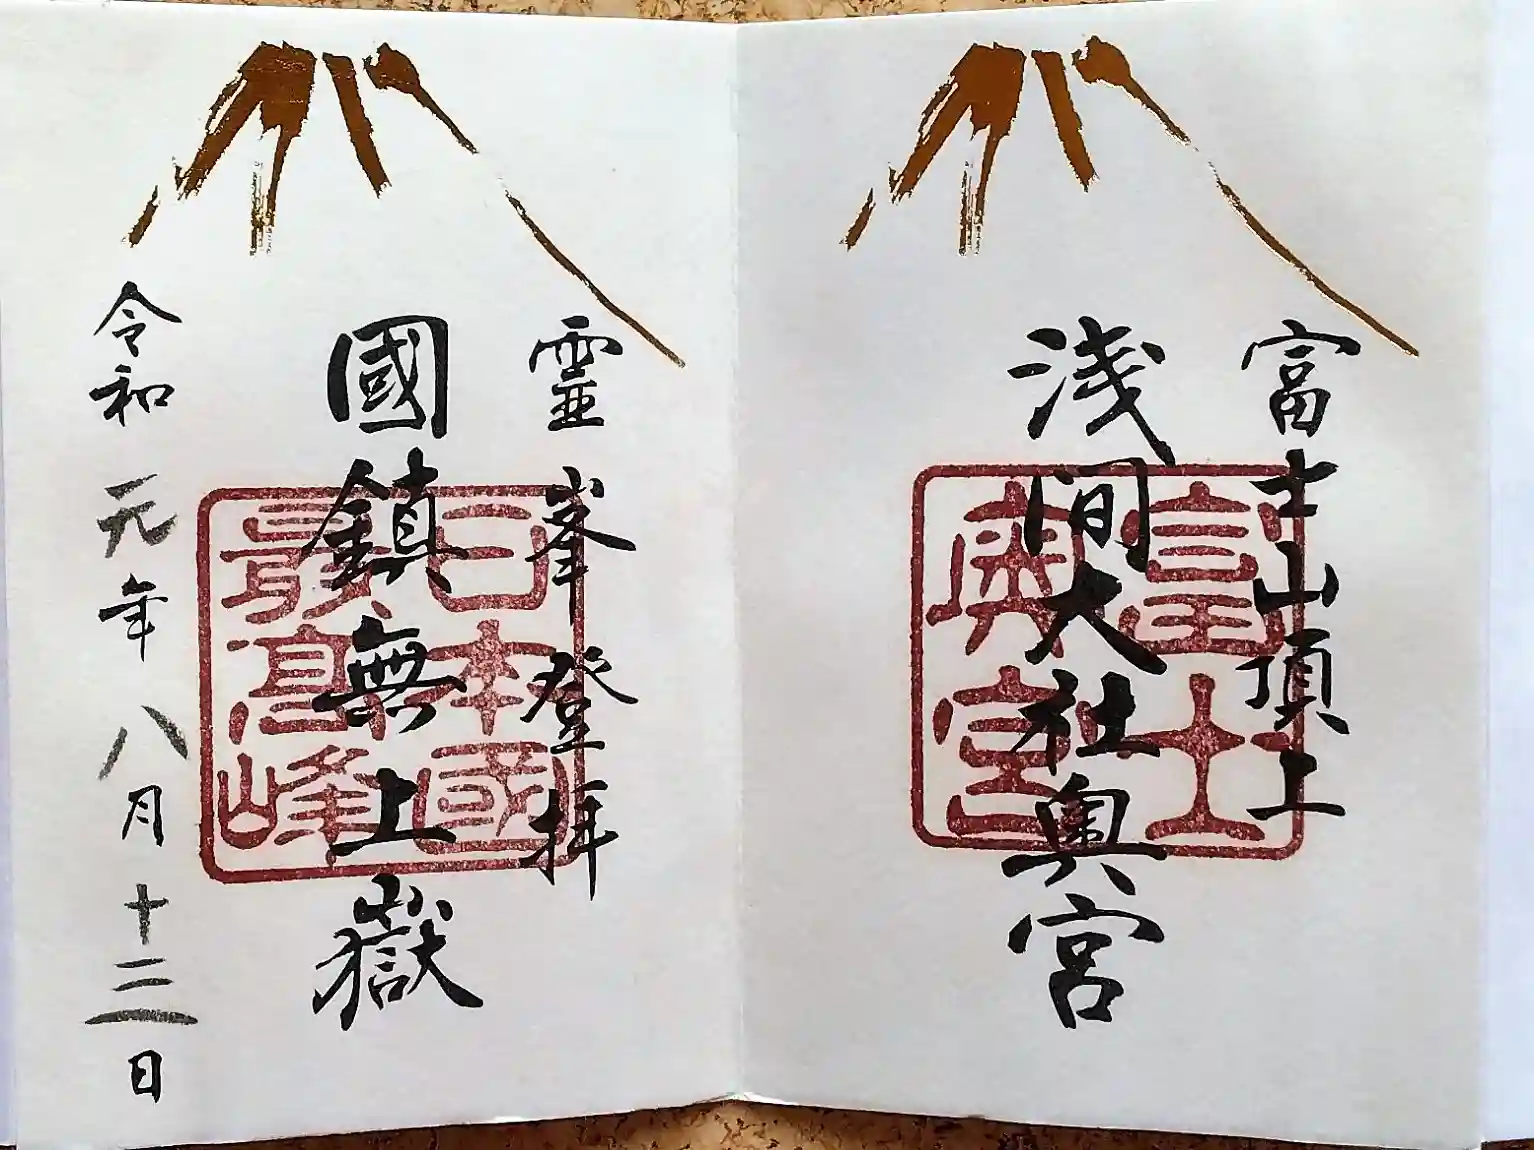 富士山頂上
浅間大社奥宮
富士
奥宮
靈峯登拝
國鎮無上嶽
日本國
最高峰
令和元年八月十三日